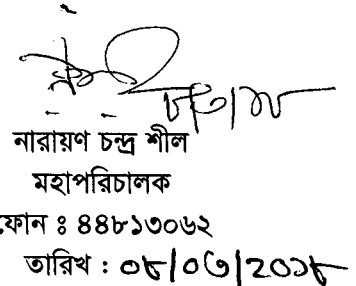 নারায়ণ চন্দ্র শীল
মহাপরিচালক
ফোন ঃ ৪৪৮১৩০৬২
তারিখ : ০৮/০৩/2০১৮